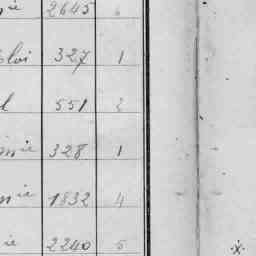 ie 2645 6
loi 327 1
l 551 2
mie 328 1
mie 1832 4
ie 2240 5
x